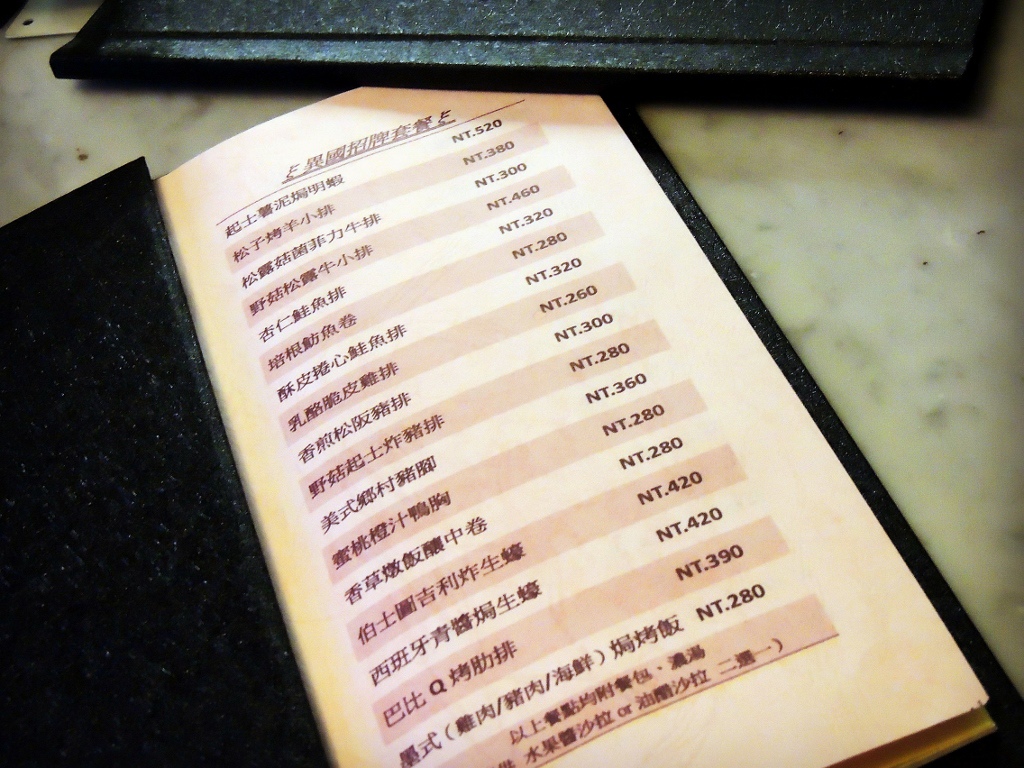 異國招牌套餐
起士薯泥焗明蝦 NT.520
松子烤羊小排 NT.380
松露菇菌菲力牛排 NT.300
野菇松露牛小排 NT.460
杏仁鮭魚排 NT.320
培根魴魚卷 NT.280
酥皮捲心鮭魚排 NT.320
乳酪脆皮雞排 NT.260
香煎松阪豬排 NT.300
野菇起士炸豬排 NT.280
美式鄉村豬腳 NT.360
蜜桃橙汁鴨胸 NT.280
香草燉飯釀中卷 NT.280
伯士圖吉利炸生蠔 NT.420
西班牙青醬焗生蠔 NT.420
巴比 Q 烤肋排 NT.390
墨式(雞肉/豬肉/海鮮)焗烤飯 NT.280
以上餐點均附餐包、濃湯
水果醬沙拉 or 油醋沙拉 二選一)